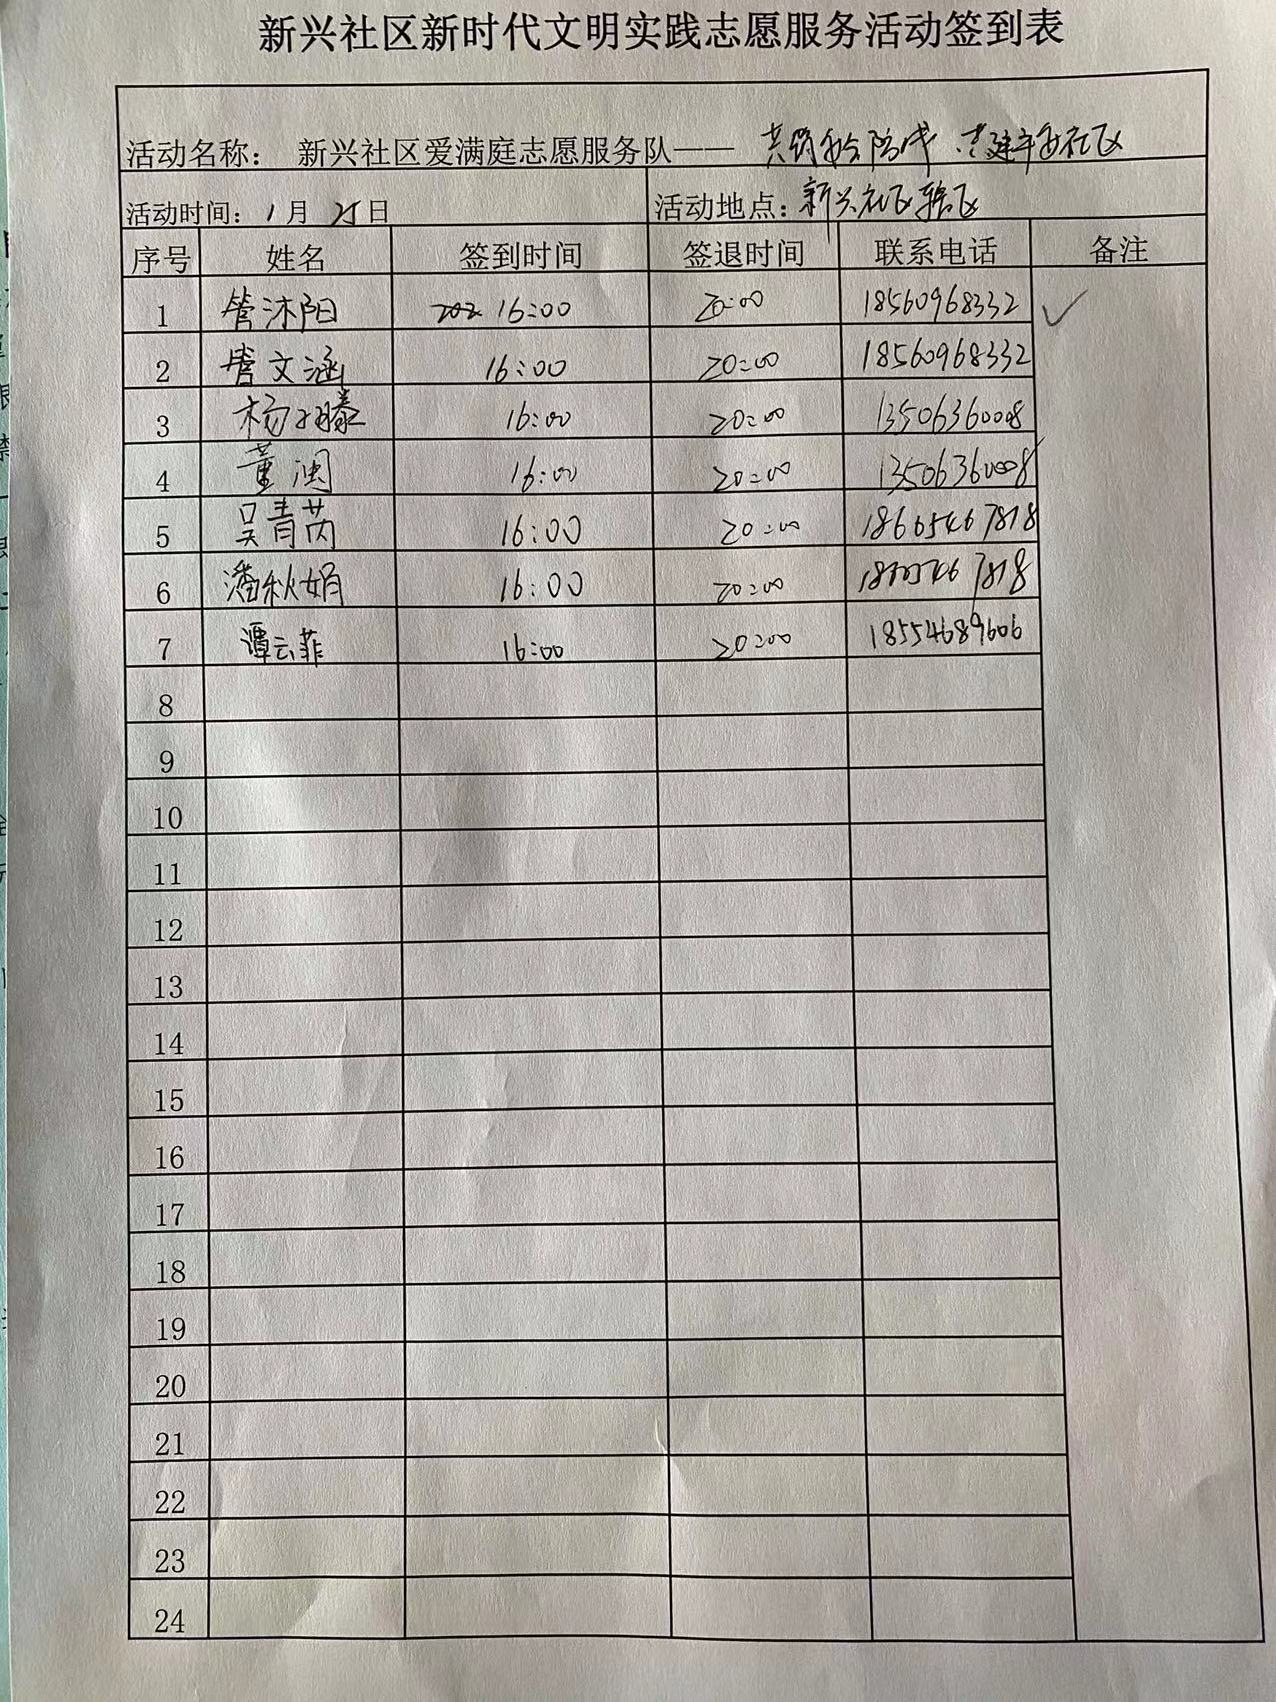 新兴社区新时代文明实践志愿服务活动签到表
活动名称： 新兴社区爱满庭志愿服务队—— 共筑安全防线 共建平安社区
活动时间：1月25日 活动地点：新兴社区辖区
序号 姓名 签到时间 签退时间 联系电话 备注
1 管沐阳 16:00 20:00 18560968332 ✓
2 管文涵 16:00 20:00 18560968332
3 杨 滕 16:00 20:00 13506360008
4 董闽 16:00 20:00 13506360008
5 吴青芮 16:00 20:00 18605467818
6 潘秋娟 16:00 20:00 7818
7 谭云菲 16:00 20:00 18554689606
8
9
10
11
12
13
14
15
16
17
18
19
20
21
22
23
24